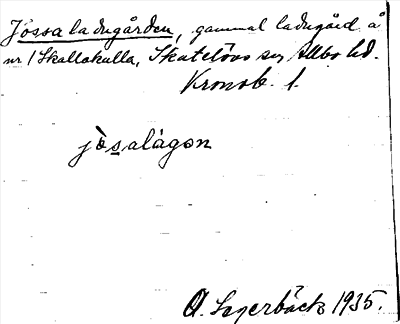 Jössaladugården, gammal ladugård å
nr 1 Skallakulla, Skatelövs sn, Allbo hd.
Kronob. l.
jösalågon
O. Lagerbäck 1935.